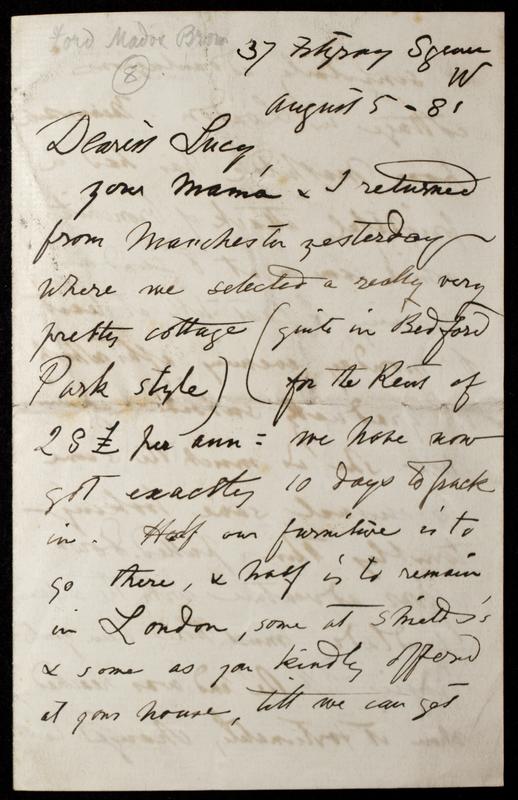 Ford Madox Brown
8
37 Fitzroy Square
W
August 5 - 81
Dearest Lucy,
your Mama & I returned
from Manchester yesterday
where we selected a really very
pretty cottage (quite in Bedford
Park style) (for the Rent of
28 £ per ann: we have now
got exactly 10 days to pack
in. Half our furniture is to
go there, & half is to remain
in London, some at Shields's
& some as you kindly offered
at your house, till we can get